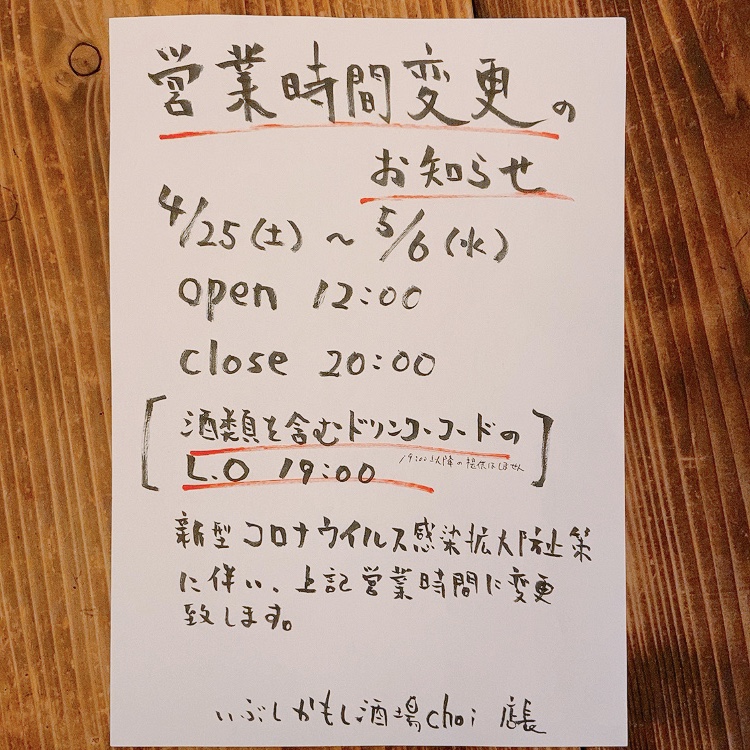 営業時間変更の
お知らせ
4/25(土)～5/6(水)
open 12:00
close 20:00
酒類を含むドリンクコードの
L.O 19:00 19:00以降の提供はしません
新型コロナウイルス感染拡大防止策
に伴い、上記営業時間に変更
致します。
いぶしかもし酒場choi 店長